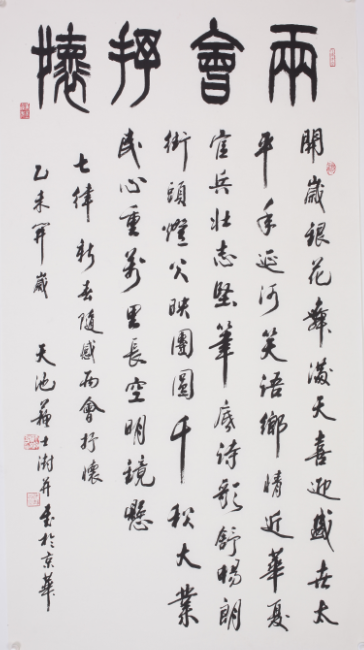 兩會抒懷
開歲銀花舞滿天喜迎盛世太
平年延河笑語鄉情近華夏
官兵壯志堅筆底詩歌舒暢朗
街頭燈火映團圓千秋大業
民心重萬里長空明鏡懸
七律新春隨感兩會抒懷
乙未开歲 天池蘇士澍并書於京華